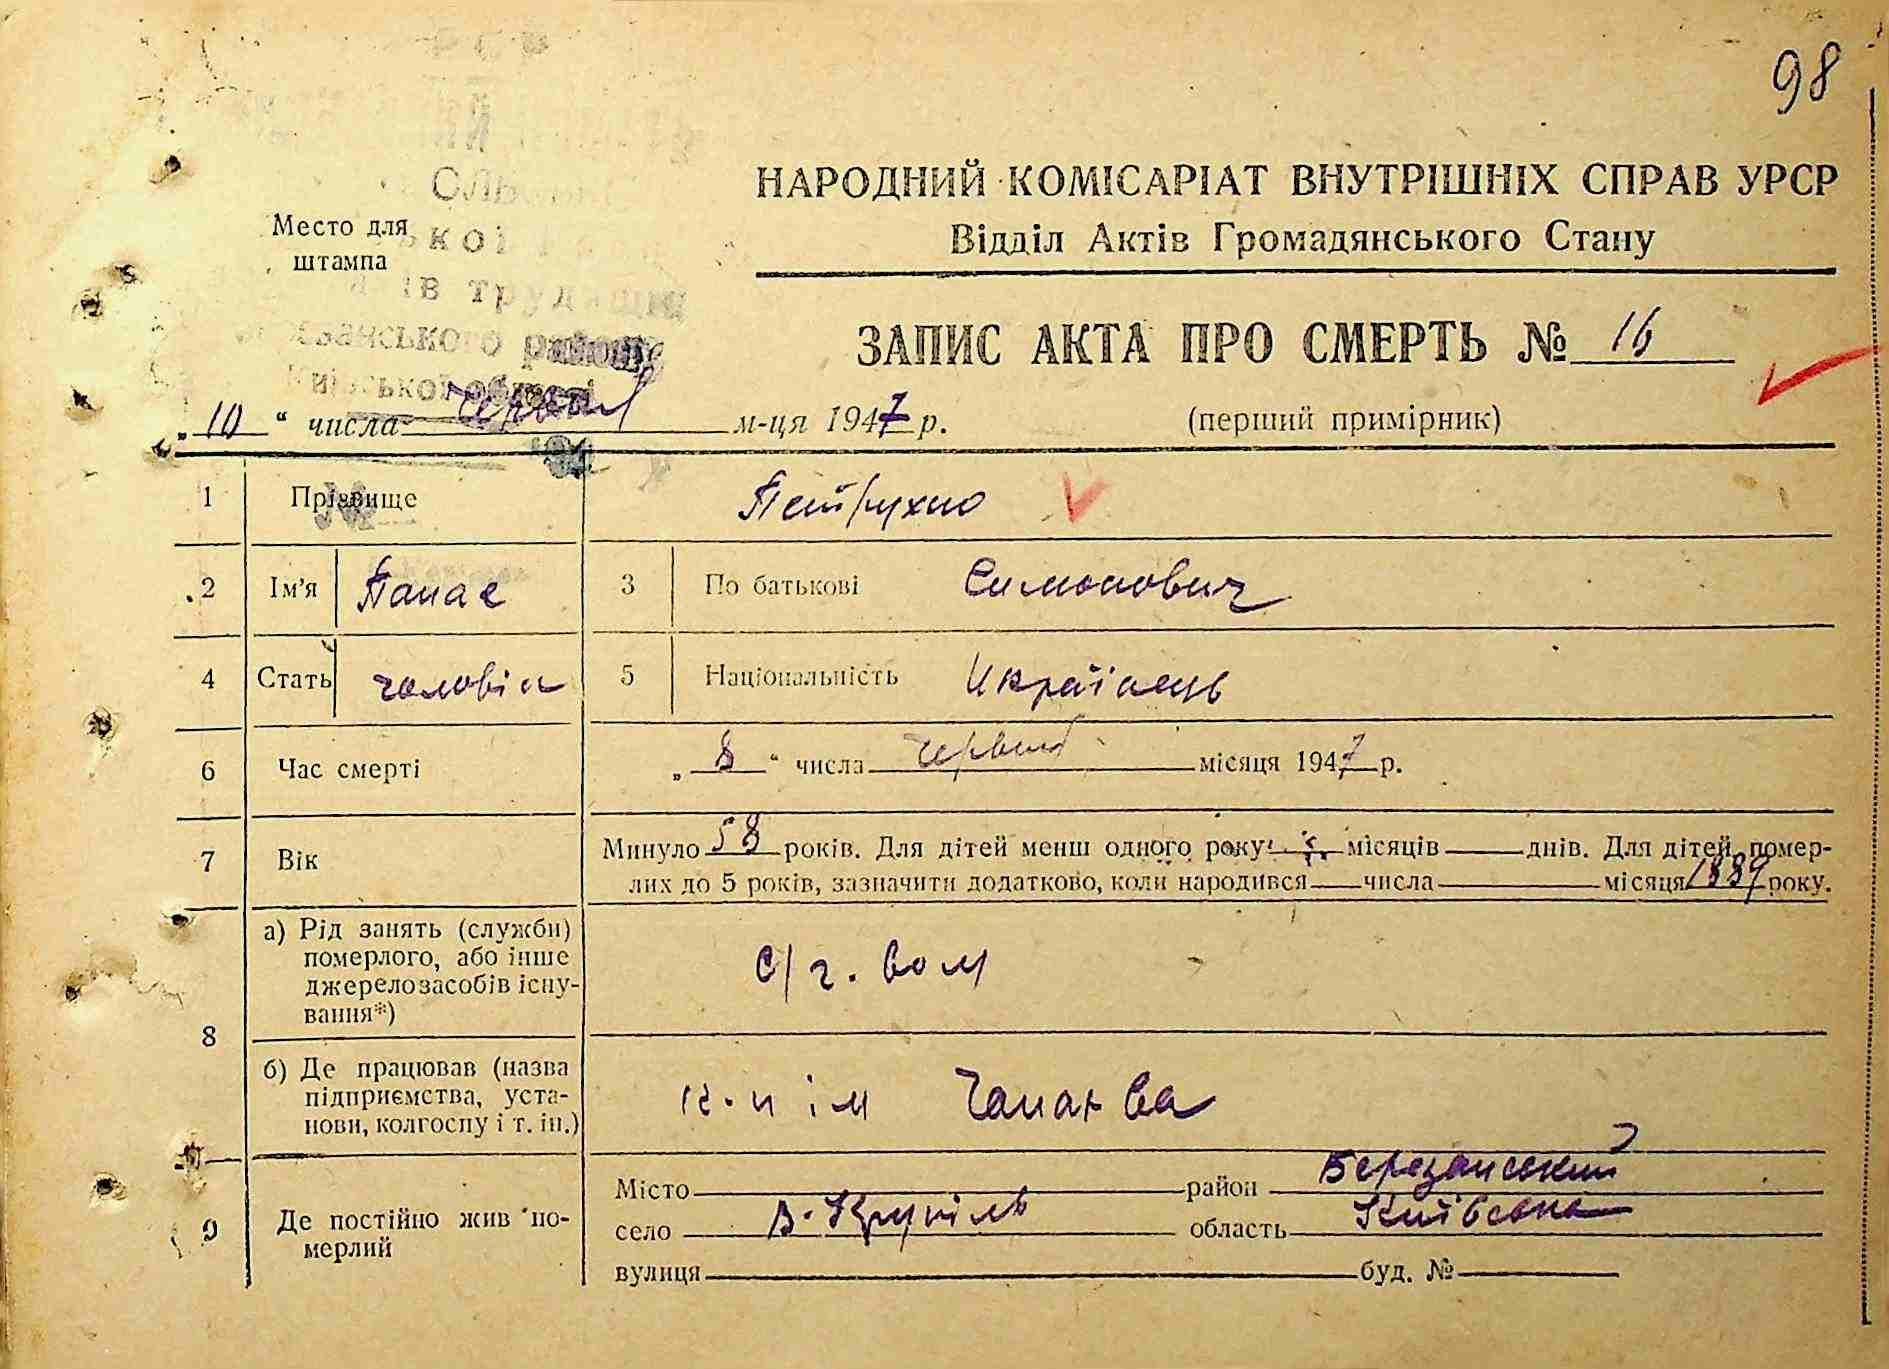 98
НАРОДНИЙ КОМІСАРІАТ ВНУТРІШНІХ СПРАВ УРСР
Відділ Актів Громадянського Стану
Место для
штампа
кої
ів трудящи
ського району
кої області
ЗАПИС АКТА ПРО СМЕРТЬ № 16
„10“ числа червня м-ця 1947 р.
(перший примірник)
1 Прізвище Петрухно
№
2 Ім'я Панас 3 По батькові Симонович
4 Стать чоловік 5 Національність Українець
6 Час смерті „8“ числа червня місяця 1947 р.
7 Вік Минуло 58 років. Для дітей менш одного року місяців днів. Для дітей помер-
лих до 5 років, зазначити додатково, коли народився числа місяця 1889 року.
8 а) Рід занять (служби)
померлого, або інше
джерело засобів існу-
вання*)
с/г. вом
б) Де працював (назва
підприємства, уста-
нови, колгоспу і т. ін.)
к-п ім Чапаєва
9 Де постійно жив по-
мерлий
Місто район Березанський
село В-Крупіль область Київська
вулиця буд. №